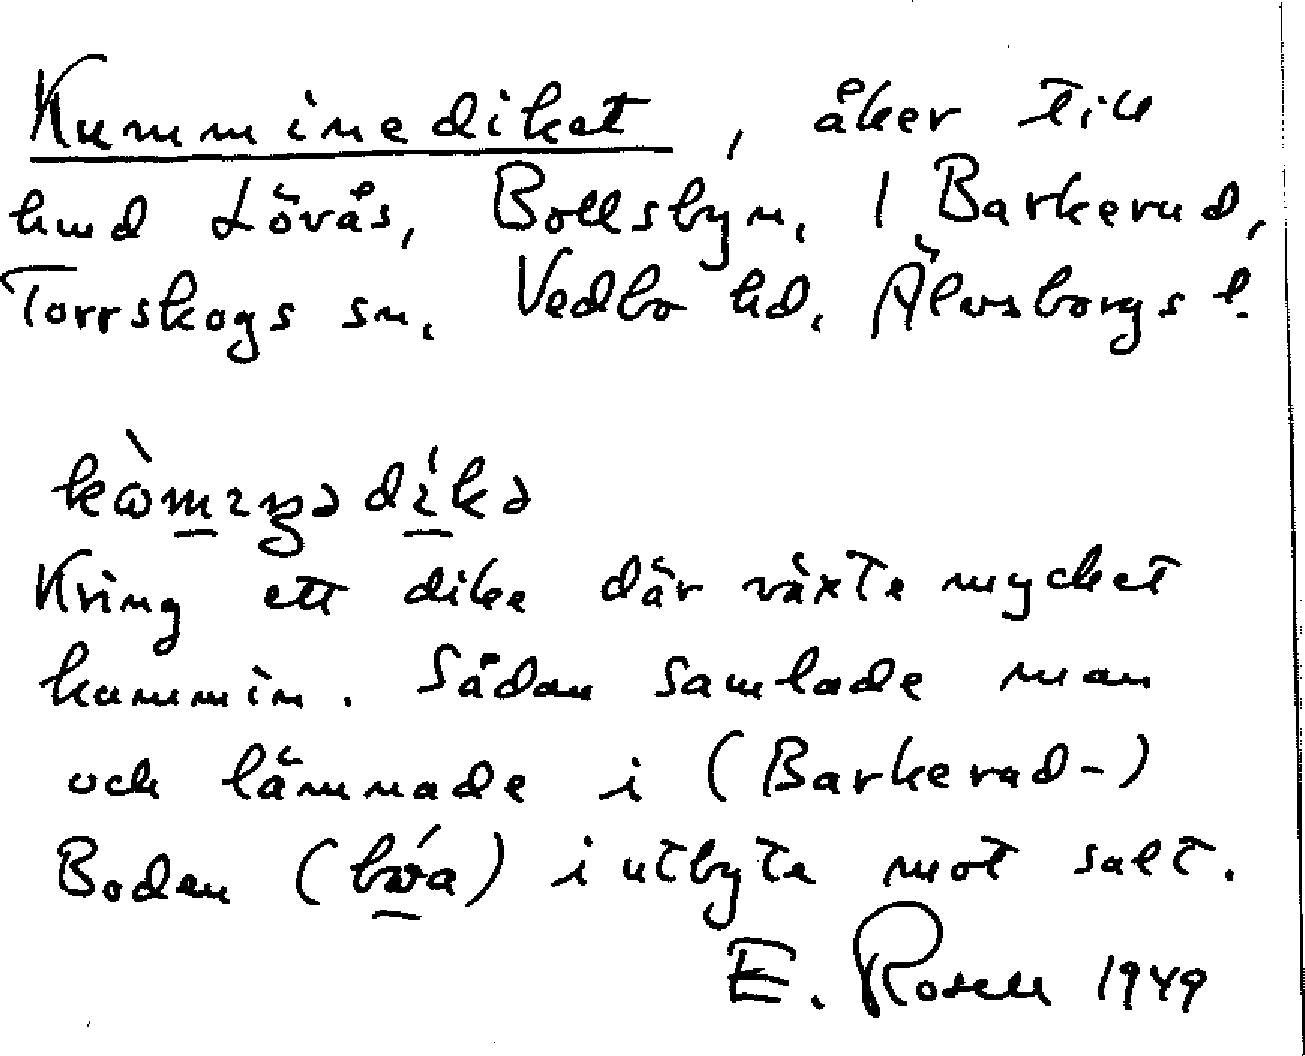 Kumminediket, åker till
hmd Lövås, Bollsbyn, 1 Barkerud,
Torrskogs sn, Vedbo hd, Älvsborgs l.
Kring ett dike där växte mycket
kummin. Sådan samlade man
och lämnade i (Barkerud-)
Boden (bɷ́a) i utbyte mot salt.
E. Rosell 1949